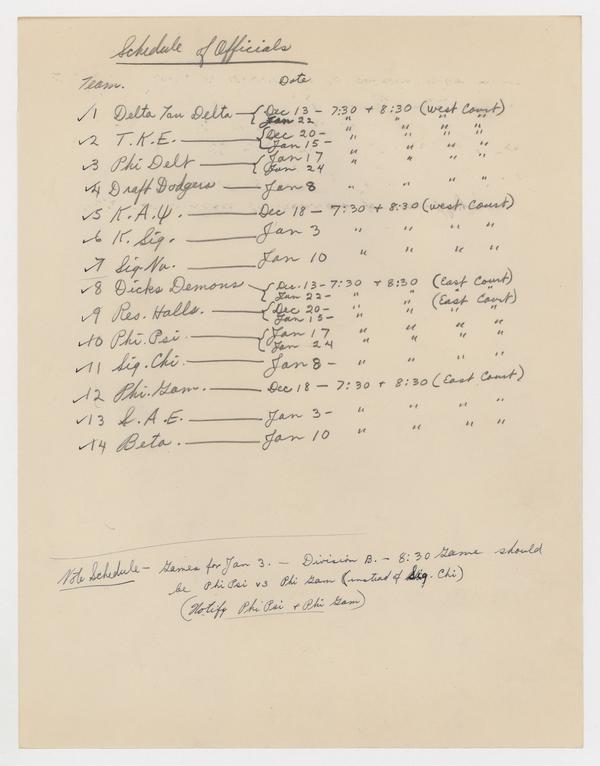 Schedule of Officials
Team. Date
✓1 Delta Tau Delta — { Dec 13 - 7:30 + 8:30 (West Court)
Jan 22 " " " "
✓2 T.K.E. — { Dec 20 - " " " "
Jan 15 - " " " "
✓3 Phi Delt — { Jan 17 " " " "
Jan 24
✓4 Draft Dodgers — Jan 8 " " " "
✓5 K.A.Ψ. — Dec 18 - 7:30 + 8:30 (West Court)
✓6 K. Sig. — Jan 3 " " " "
✓7 Sig. Nu. — Jan 10 " " " "
✓8 Dicks Demons — { Dec. 13 - 7:30 + 8:30 (East Court)
Jan 22 - " " (East Court)
✓9 Res. Halls. — { Dec 20 - " " " "
Jan 15 - " " " "
✓10 Phi. Psi — { Jan 17 " " " "
Jan 24 " " " "
✓11 Sig. Chi. — Jan 8 - " " " "
✓12 Phi. Gam. — Dec 18 - 7:30 + 8:30 (East Court)
✓13 S.A.E. — Jan 3 - " " " "
✓14 Beta. — Jan 10 " " " "
Note Schedule - Games for Jan 3. - Division B. - 8:30 Game should
be Phi Psi vs Phi Gam (instead of Sig. Chi)
(Notify Phi Psi + Phi Gam)